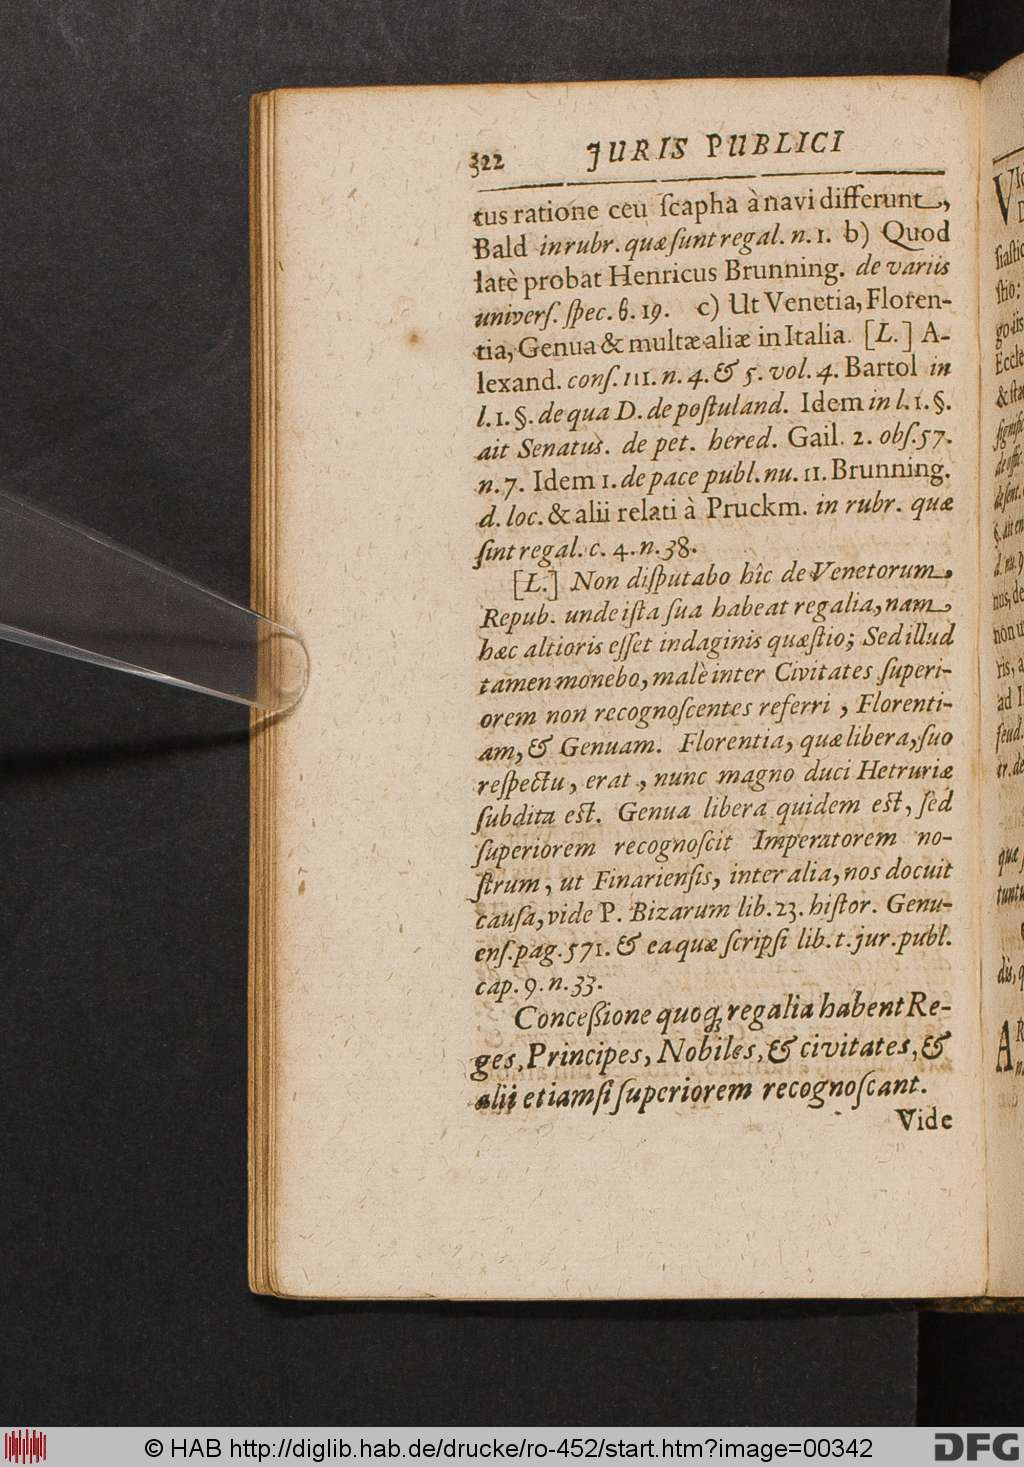 322 JURIS PUBLICI
tus ratione ceu ſcapha à navi differunt,
Bald in rubr. quæ ſunt regal. n. 1. b) Quod
latè probat Henricus Brunning. de variis
univerſ. ſpec. 6. 19. c) Ut Venetia, Floren-
tia, Genua & multæ aliæ in Italia. [L.] A-
lexand. conſ. 111. n. 4. & 5. vol. 4. Bartol in
l. 1. §. de qua D. de poſtuland. Idem in l. 1. §.
ait Senatus. de pet. hered. Gail. 2. obſ. 57.
n. 7. Idem 1. de pace publ. nu. 11. Brunning.
d. loc. & alii relati à Pruckm. in rubr. quæ
ſint regal. c. 4. n. 38.
[L.] Non diſputabo hîc de Venetorum
Repub. unde iſta ſua habeat regalia, nam
hæc altioris eſſet indaginis quæſtio; Sed illud
tamen monebo, malè inter Civitates ſuperi-
orem non recognoſcentes referri, Florenti-
am, & Genuam. Florentia, quæ libera, ſuo
reſpectu, erat, nunc magno duci Hetruriæ
ſubdita eſt. Genua libera quidem eſt, ſed
ſuperiorem recognoſcit Imperatorem no-
ſtrum, ut Finarienſis, inter alia, nos docuit
cauſa, vide P. Bizarum lib. 23. hiſtor. Genu-
enſ. pag. 571. & ea quæ ſcripſi lib. t. jur. publ.
cap. 9. n. 33.
Conceßione quoq; regalia habent Re-
ges, Principes, Nobiles, & civitates, &
alii etiamſi ſuperiorem recognoſcant.
Vide
© HAB http://diglib.hab.de/drucke/ro-452/start.htm?image=00342
DFG